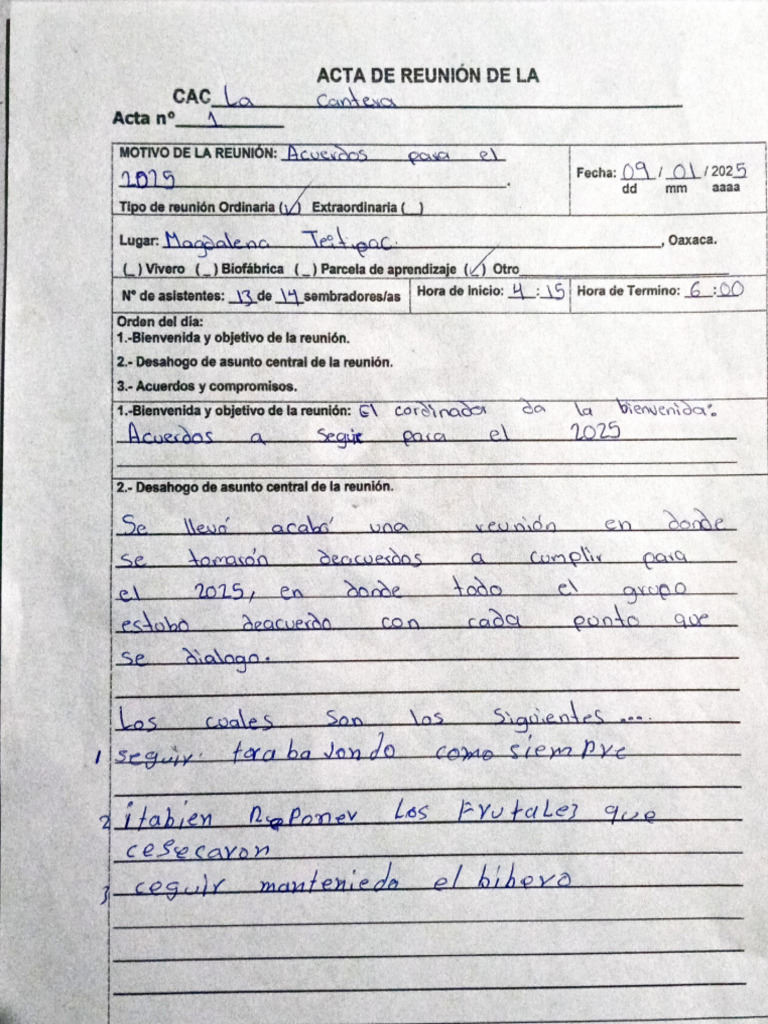 ACTA DE REUNIÓN DE LA
CAC La Cantera
Acta nº 1
MOTIVO DE LA REUNIÓN: Acuerdos para el
2025.
Fecha: 09 / 01 / 2025
dd mm aaaa
Tipo de reunión Ordinaria (✓) Extraordinaria (_)
Lugar: Magdalena Teitipac. , Oaxaca.
(_) Vivero (_) Biofábrica (_) Parcela de aprendizaje (✓) Otro
Nº de asistentes: 13 de 14 sembradores/as Hora de Inicio: 4:15 Hora de Termino: 6:00
Orden del día:
1.-Bienvenida y objetivo de la reunión.
2.- Desahogo de asunto central de la reunión.
3.- Acuerdos y compromisos.
1.-Bienvenida y objetivo de la reunión: El cordinador da la bienvenida:
Acuerdos a segir para el 2025
2.- Desahogo de asunto central de la reunión.
Se llevó acabó una reunión en donde
se tomarón deacuerdos a cumplir para
el 2025, en donde todo el grupo
estabo deacuerdo con cada punto que
se dialogo.
Los cuales son los siguientes ....
1 seguir. tarabajondo como siempre
2 itabien Reponer los Frutales que
cesecaron
3 ceguir manteniedo el bibero